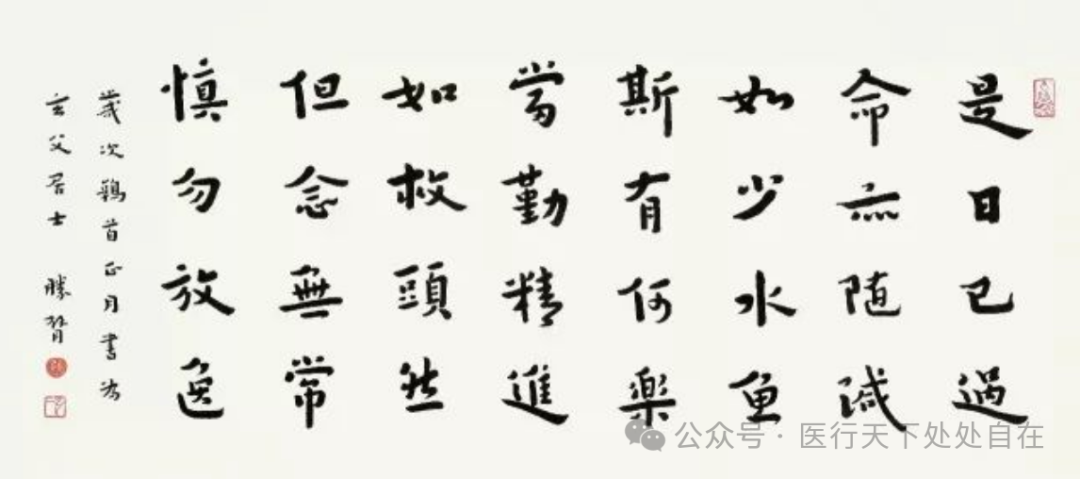 是日已過
命亦随減
如少水魚
斯有何樂
當勤精進
如救頭然
但念無常
慎勿放逸
歲次鶉首正月書為
玄父居士 勝賢
公众号 · 医行天下处处自在